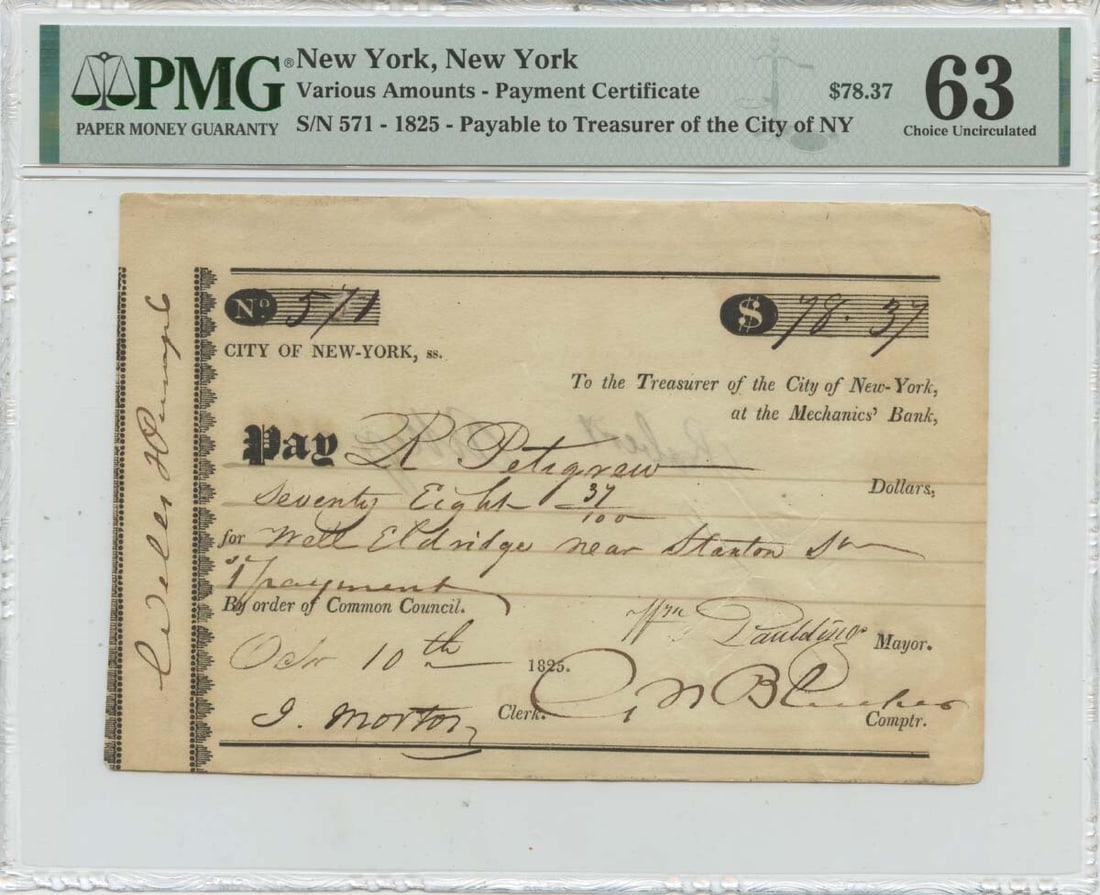 PMG® New York, New York
PAPER MONEY GUARANTY
Various Amounts - Payment Certificate $78.37
S/N 571 - 1825 - Payable to Treasurer of the City of NY
63
Choice Uncirculated
Wells & Pumps
No 571
$ 78.37
CITY OF NEW-YORK, ss.
To the Treasurer of the City of New-York,
at the Mechanics' Bank,
Pay R Petigrew
Seventy Eight 37/100 Dollars,
for Well Eldridge near Stanton St
payment
By order of Common Council.
Wm Paulding Mayor.
Octr 10th 1825.
J. Morton Clerk.
Comptr.